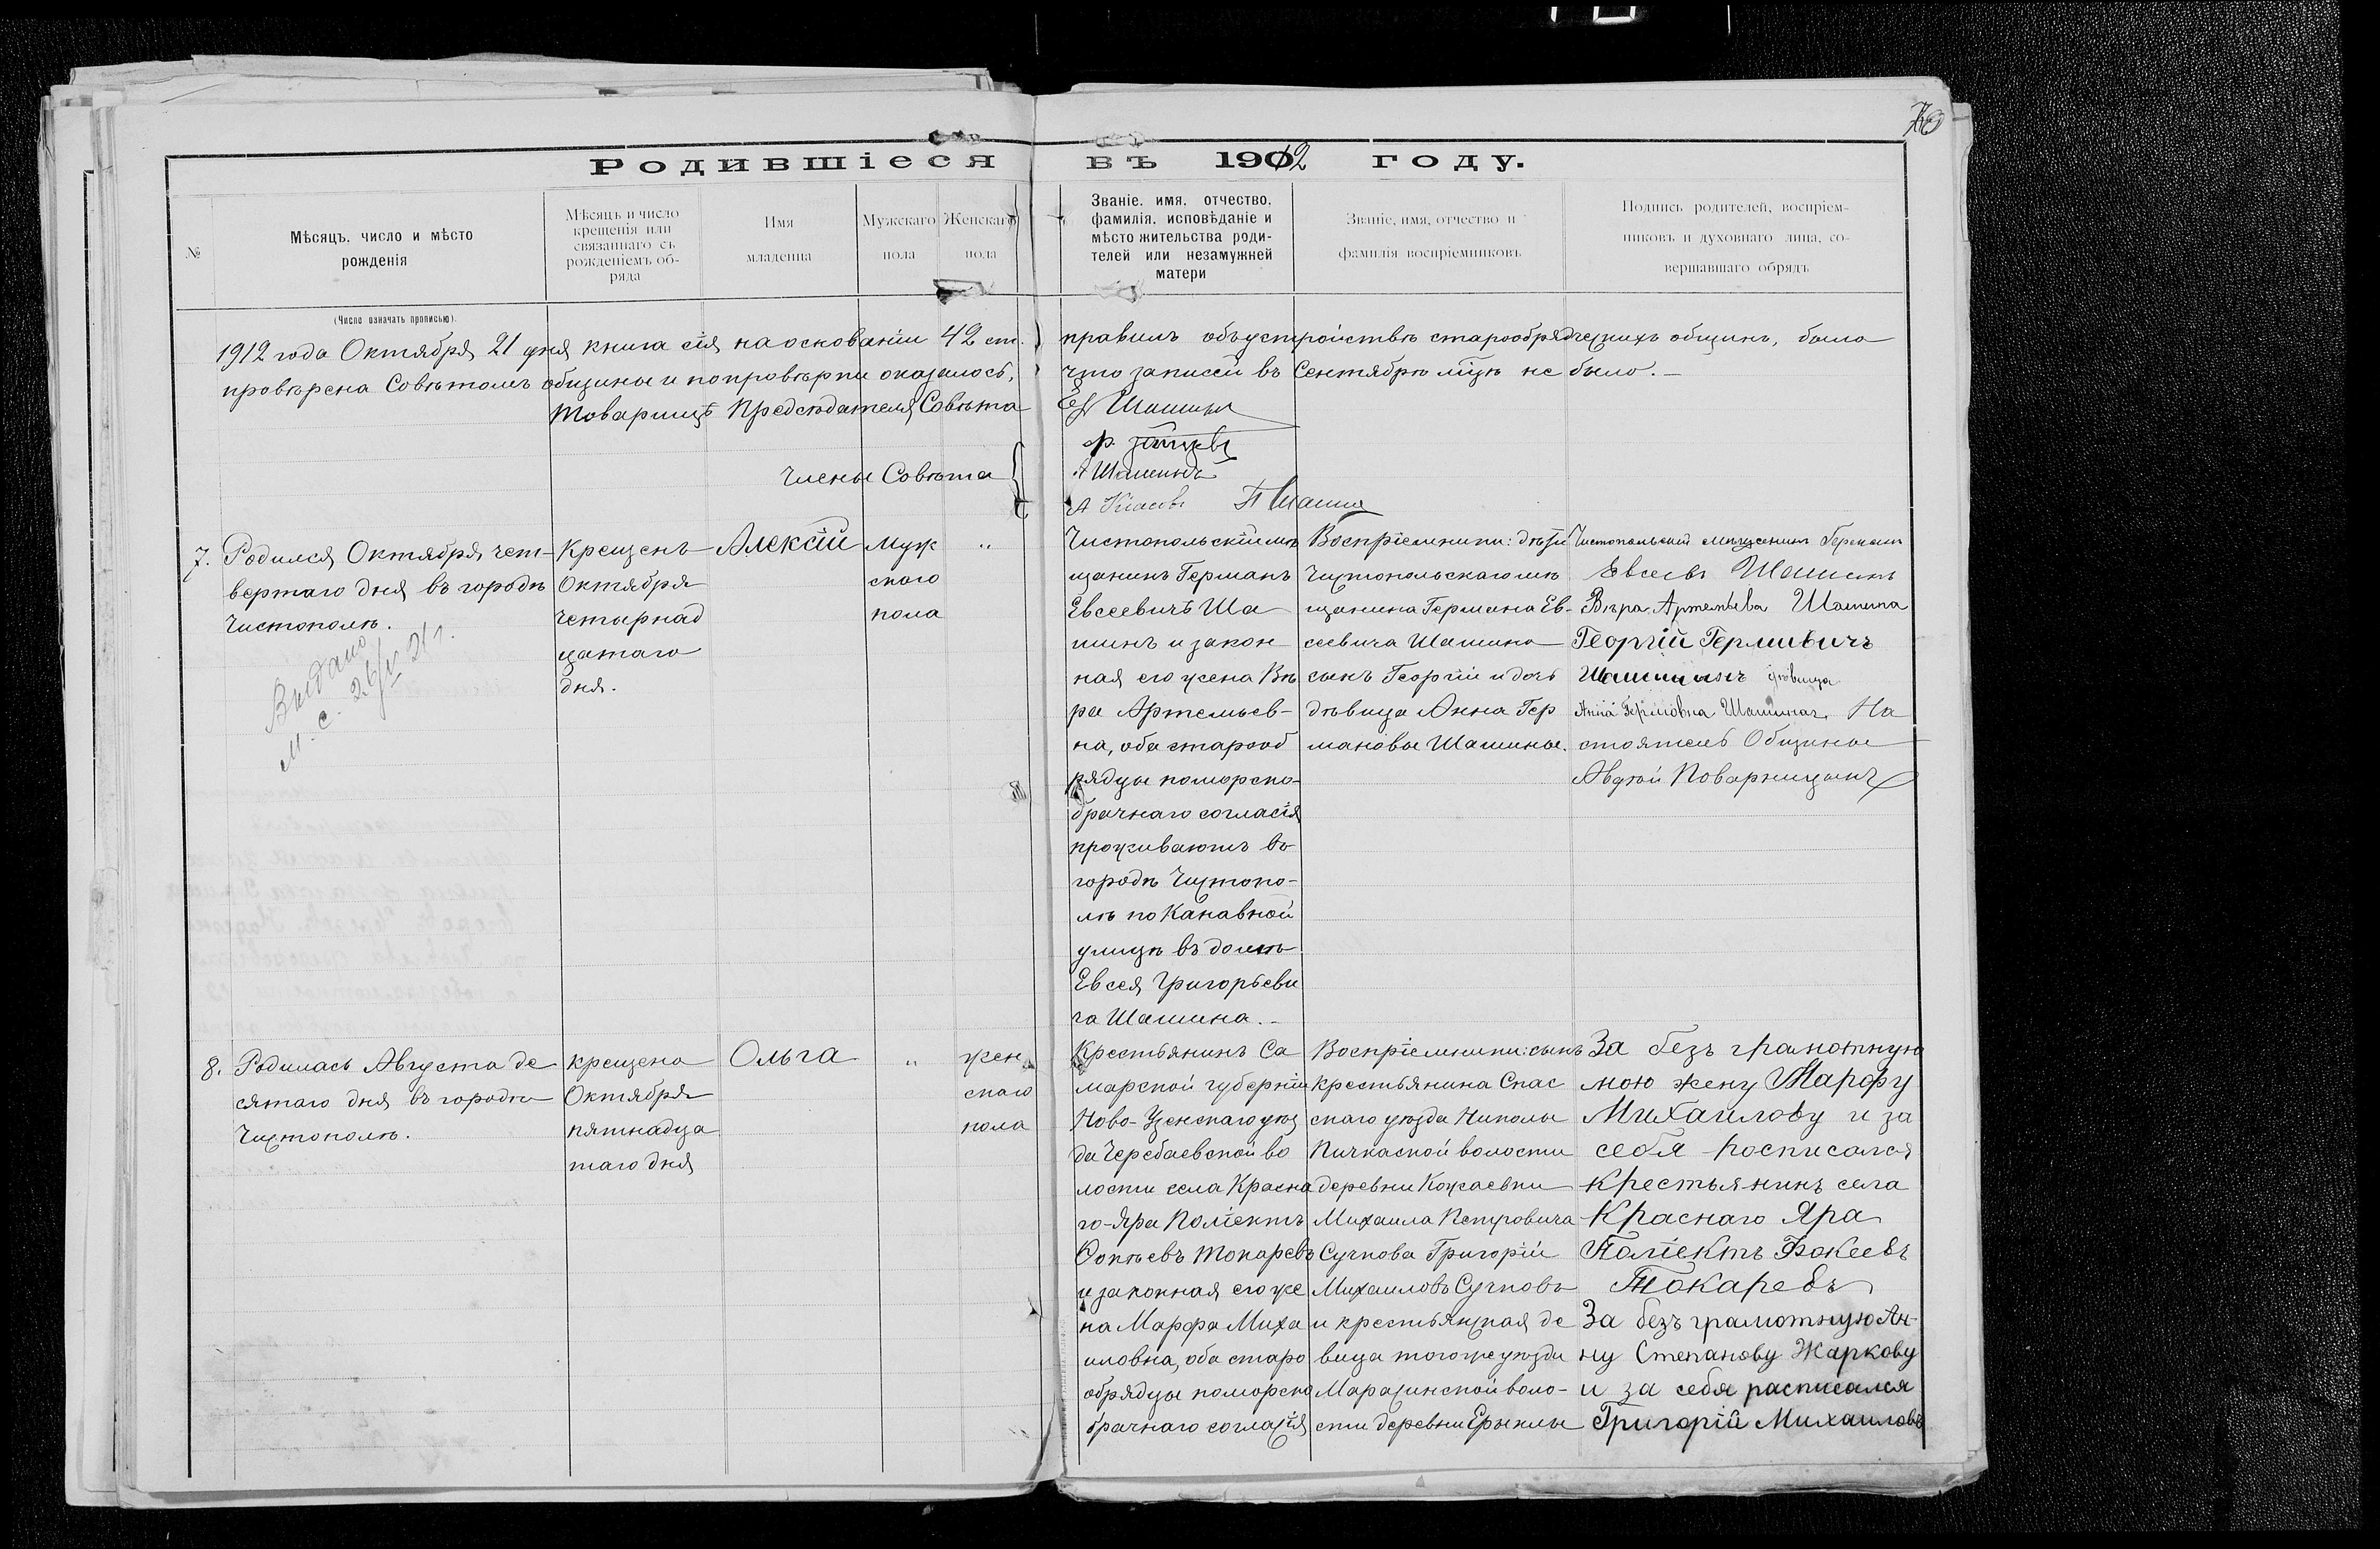 Родившіеся въ 1912 году.
№
Мѣсяцъ, число и мѣсто
рожденія
Мѣсяцъ и число
крещенія или
связаннаго съ
рожденіемъ об-
ряда
Имя
младенца
Мужскаго
пола
Женскаго
пола
Званіе, имя, отчество,
фамилія, исповѣданіе и
мѣсто жительства роди-
телей или незамужней
матери
Званіе, имя, отчество и
фамилія воспріемниковъ
Подпись родителей, воспріем-
никовъ и духовнаго лица, со-
вершавшаго обрядъ
(Число означать прописью).
1912 года Октября 21 дня книга сія на основаніи 42 ст. правилъ объ устройствѣ старообрядческихъ общинъ, была
провѣрена Совѣтомъ общины и по провѣрки оказалось, что записей въ Сентябрѣ м̃цѣ не было. –
Товарищъ Предсѣдателя Совѣта Е Шашин
Члены Совѣта
А Шашинъ
П Шашин
7.
Родился Октября чет-
вертаго дня въ городѣ
Чистополѣ.
Выдано
М. С. 26/V 21 г.
Крещенъ
Октября
четырнад
цатаго
дня.
Алексій
Муж
скаго
пола
"
Чистопольскій мѣ
щанинъ Германъ
Евсеевичъ Ша
шинъ и закон
ная его жена Вѣ
ра Артемьев-
на, оба старооб
рядцы поморско-
брачнаго согласія
проживаютъ въ
городѣ Чистопо-
лѣ по Канавной
улицѣ въ домѣ
Евсея Григорьеви
ча Шашина. –
Воспріемники: дѣти
Чистопольскаго мѣ
щанина Германа Ев-
сеевича Шашина
сынъ Георгій и дочь
дѣвица Анна Гер
мановы Шашины.
Чистопольскій мѣщанинъ Германъ
Евсеевъ Шашинъ
Вѣра Артемьева Шашина
Георгій Гермновичъ
Шашин дѣвица
Анна Гермновна Шашина. На
стоятель Общины
Авдѣй Поварницынъ
8.
Родилась Августа де
сятаго дня въ городѣ
Чистополѣ.
крещена
Октября
пятнадца
таго дня
Ольга
"
жен
скаго
пола
Крестьянинъ Са
марской губерніи
Ново-Узенскаго уѣз
да Черебаевской во
лости села Красна
го-Яра Поліектъ
Фокѣевъ Токаревъ
и законная его же
на Марфа Миха
иловна, оба старо
обрядцы поморско
брачнаго согласія
Воспріемники: сынъ
крестьянина Спас
скаго уѣзда Николы
Пичкаской волости
деревни Кожаевки
Михаила Петровича
Сучкова Григорій
Михаиловъ Сучковъ
и крестьянская де
вица того же уѣзда
Марасинской воло-
сти деревни Ерыклы
За безъ грамотную
мою жену Марфу
Михаилову и за
себя росписался
крестьянинъ села
Краснаго Яра
Поліектъ Фокеевъ
Токаревъ
За безъ грамотную Ан-
ну Степанову Жаркову
и за себя расписался
Григорій Михаиловъ